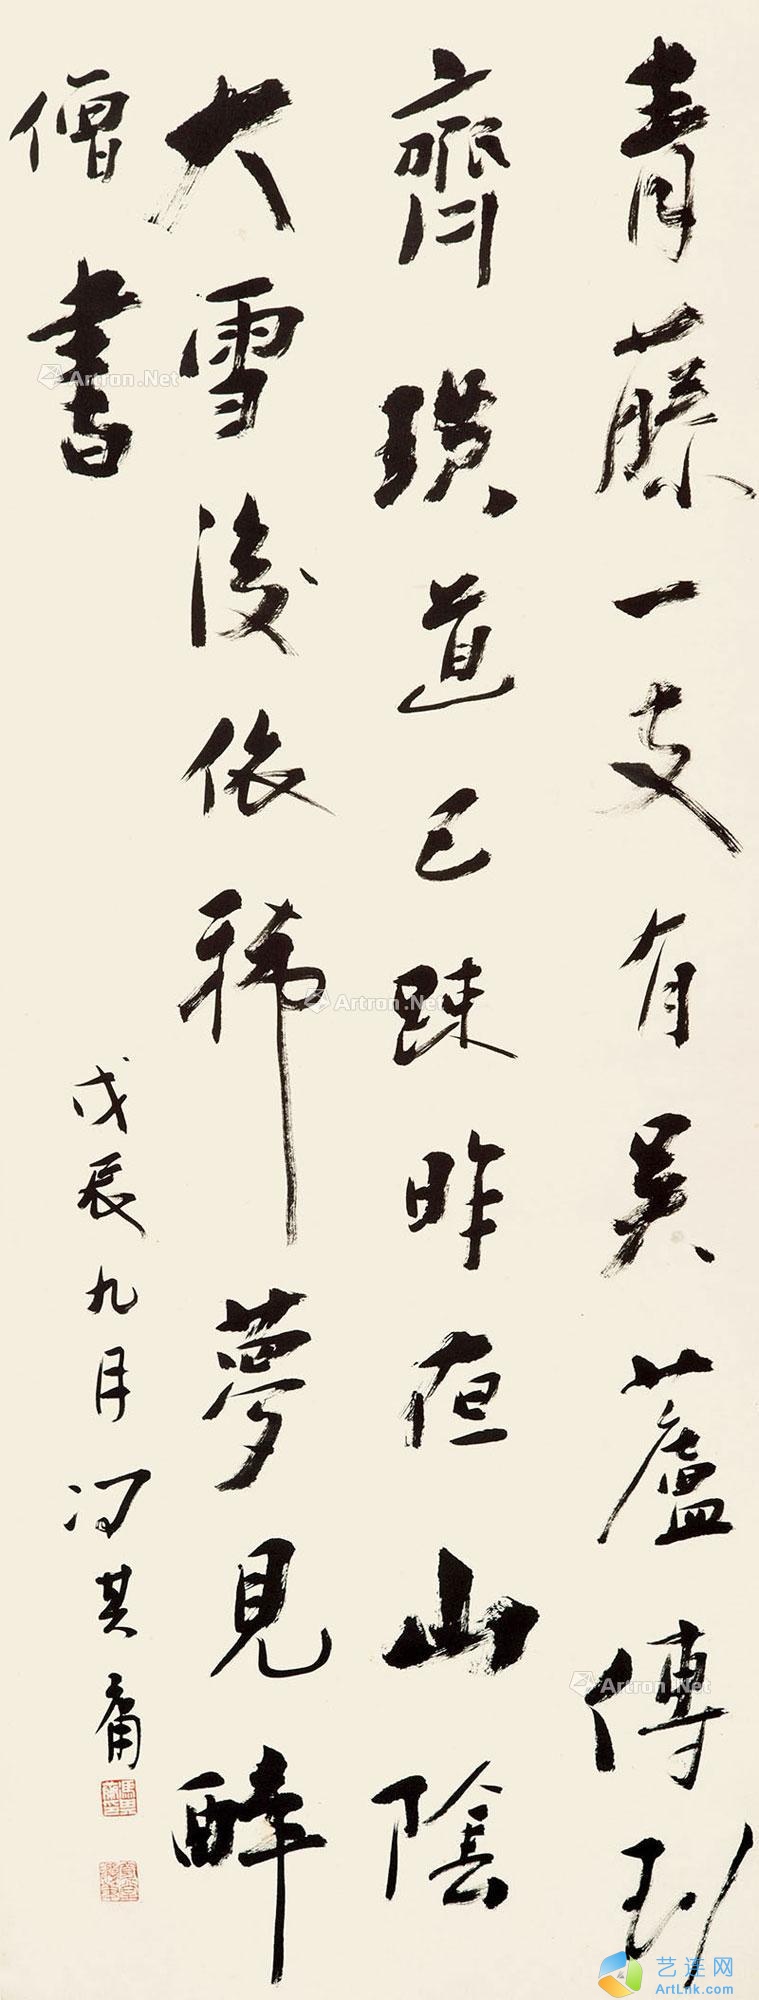 青藤一支有吴蘆傳到
齊璜道已踈昨夜山陰
大雪後依稀夢見醉
僧書
戊辰九月冯其庸
Artron.Net
Artron.Net
Artron.Net
艺连网
ArtLink.com